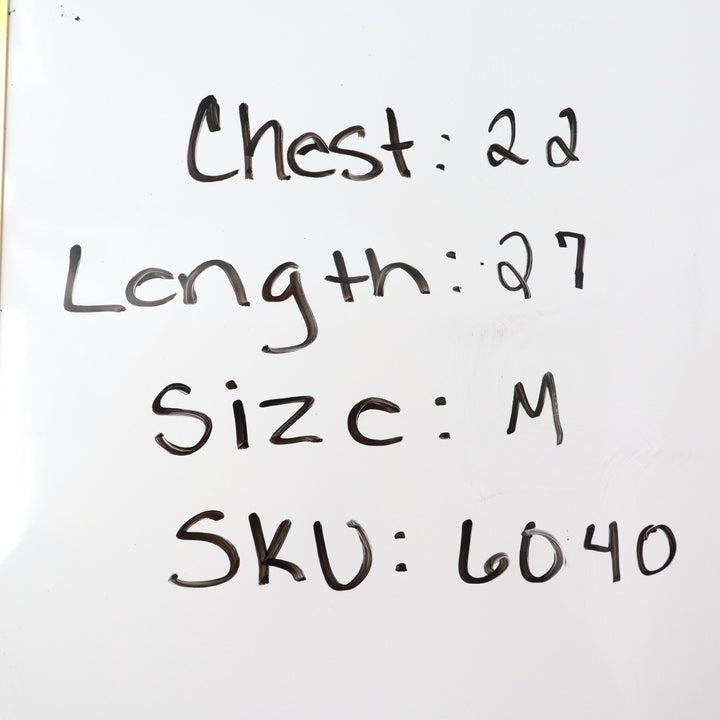 Chest: 22
Length: 27
Size: M
SKU: 6040